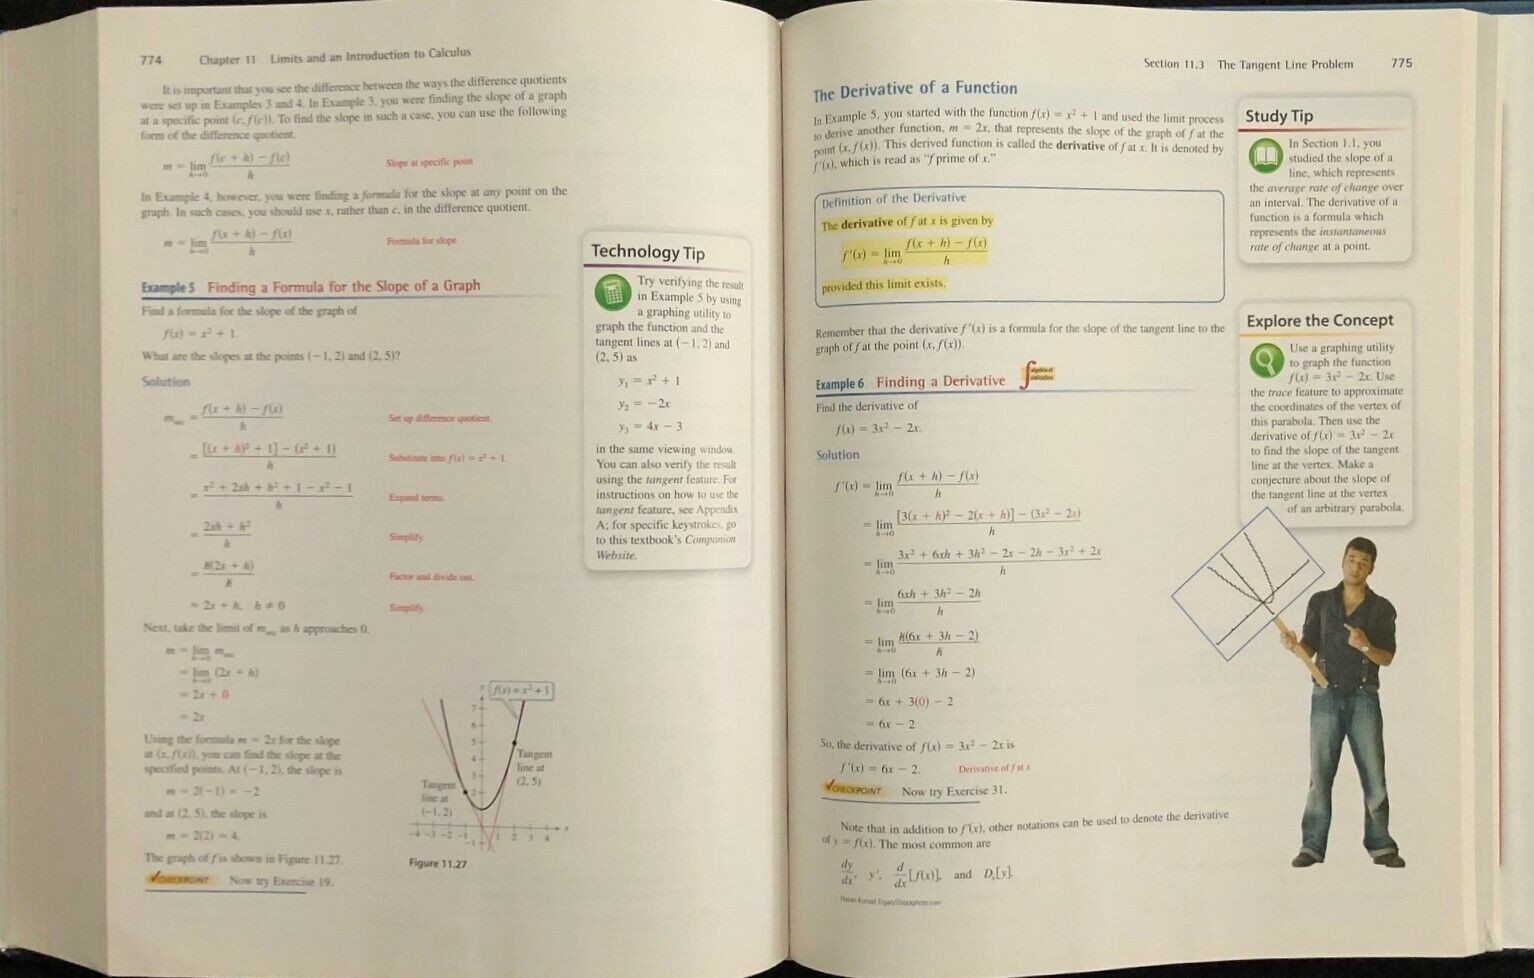 774 Chapter 11 Limits and an Introduction to Calculus
It is important that you see the difference between the ways the difference quotients
were set up in Examples 3 and 4. In Example 3, you were finding the slope of a graph
at a specific point (c, f(c)). To find the slope in such a case, you can use the following
form of the difference quotient.
m = lim h→0 f(c + h) − f(c) / h Slope at specific point
In Example 4, however, you were finding a formula for the slope at any point on the
graph. In such cases, you should use x, rather than c, in the difference quotient.
m = lim h→0 f(x + h) − f(x) / h Formula for slope
Example 5 Finding a Formula for the Slope of a Graph
Find a formula for the slope of the graph of
f(x) = x² + 1.
What are the slopes at the points (−1, 2) and (2, 5)?
Solution
m sec = f(x + h) − f(x) / h Set up difference quotient.
= [(x + h)² + 1] − (x² + 1) / h Substitute into f(x) = x² + 1.
= x² + 2xh + h² + 1 − x² − 1 / h Expand terms.
= 2xh + h² / h Simplify.
= h(2x + h) / h Factor and divide out.
= 2x + h, h ≠ 0 Simplify.
Next, take the limit of m sec as h approaches 0.
m = lim h→0 m sec
= lim h→0 (2x + h)
= 2x + 0
= 2x
Using the formula m = 2x for the slope
at (x, f(x)), you can find the slope at the
specified points. At (−1, 2), the slope is
m = 2(−1) = −2
and at (2, 5), the slope is
m = 2(2) = 4.
The graph of f is shown in Figure 11.27.
CHECKPOINT Now try Exercise 19.
y
f(x) = x² + 1
7
6
5
4
3
2
Tangent
line at
(2, 5)
Tangent
line at
(−1, 2)
−4 −3 −2 −1 1 2 3 4 x
−1
Figure 11.27
Technology Tip
Try verifying the result
in Example 5 by using
a graphing utility to
graph the function and the
tangent lines at (−1, 2) and
(2, 5) as
y₁ = x² + 1
y₂ = −2x
y₃ = 4x − 3
in the same viewing window.
You can also verify the result
using the tangent feature. For
instructions on how to use the
tangent feature, see Appendix
A; for specific keystrokes, go
to this textbook's Companion
Website.
Section 11.3 The Tangent Line Problem 775
The Derivative of a Function
In Example 5, you started with the function f(x) = x² + 1 and used the limit process
to derive another function, m = 2x, that represents the slope of the graph of f at the
point (x, f(x)). This derived function is called the derivative of f at x. It is denoted by
f′(x), which is read as "f prime of x."
Definition of the Derivative
The derivative of f at x is given by
f′(x) = lim h→0 f(x + h) − f(x) / h
provided this limit exists.
Remember that the derivative f′(x) is a formula for the slope of the tangent line to the
graph of f at the point (x, f(x)).
Example 6 Finding a Derivative
algebra of
calculus
Find the derivative of
f(x) = 3x² − 2x.
Solution
f′(x) = lim h→0 f(x + h) − f(x) / h
= lim h→0 [3(x + h)² − 2(x + h)] − (3x² − 2x) / h
= lim h→0 3x² + 6xh + 3h² − 2x − 2h − 3x² + 2x / h
= lim h→0 6xh + 3h² − 2h / h
= lim h→0 h(6x + 3h − 2) / h
= lim h→0 (6x + 3h − 2)
= 6x + 3(0) − 2
= 6x − 2
So, the derivative of f(x) = 3x² − 2x is
f′(x) = 6x − 2. Derivative of f at x
CHECKPOINT Now try Exercise 31.
Note that in addition to f′(x), other notations can be used to denote the derivative
of y = f(x). The most common are
dy/dx, y′, d/dx [f(x)], and Dₓ[y].
Study Tip
In Section 1.1, you
studied the slope of a
line, which represents
the average rate of change over
an interval. The derivative of a
function is a formula which
represents the instantaneous
rate of change at a point.
Explore the Concept
Use a graphing utility
to graph the function
f(x) = 3x² − 2x. Use
the trace feature to approximate
the coordinates of the vertex of
this parabola. Then use the
derivative of f(x) = 3x² − 2x
to find the slope of the tangent
line at the vertex. Make a
conjecture about the slope of
the tangent line at the vertex
of an arbitrary parabola.